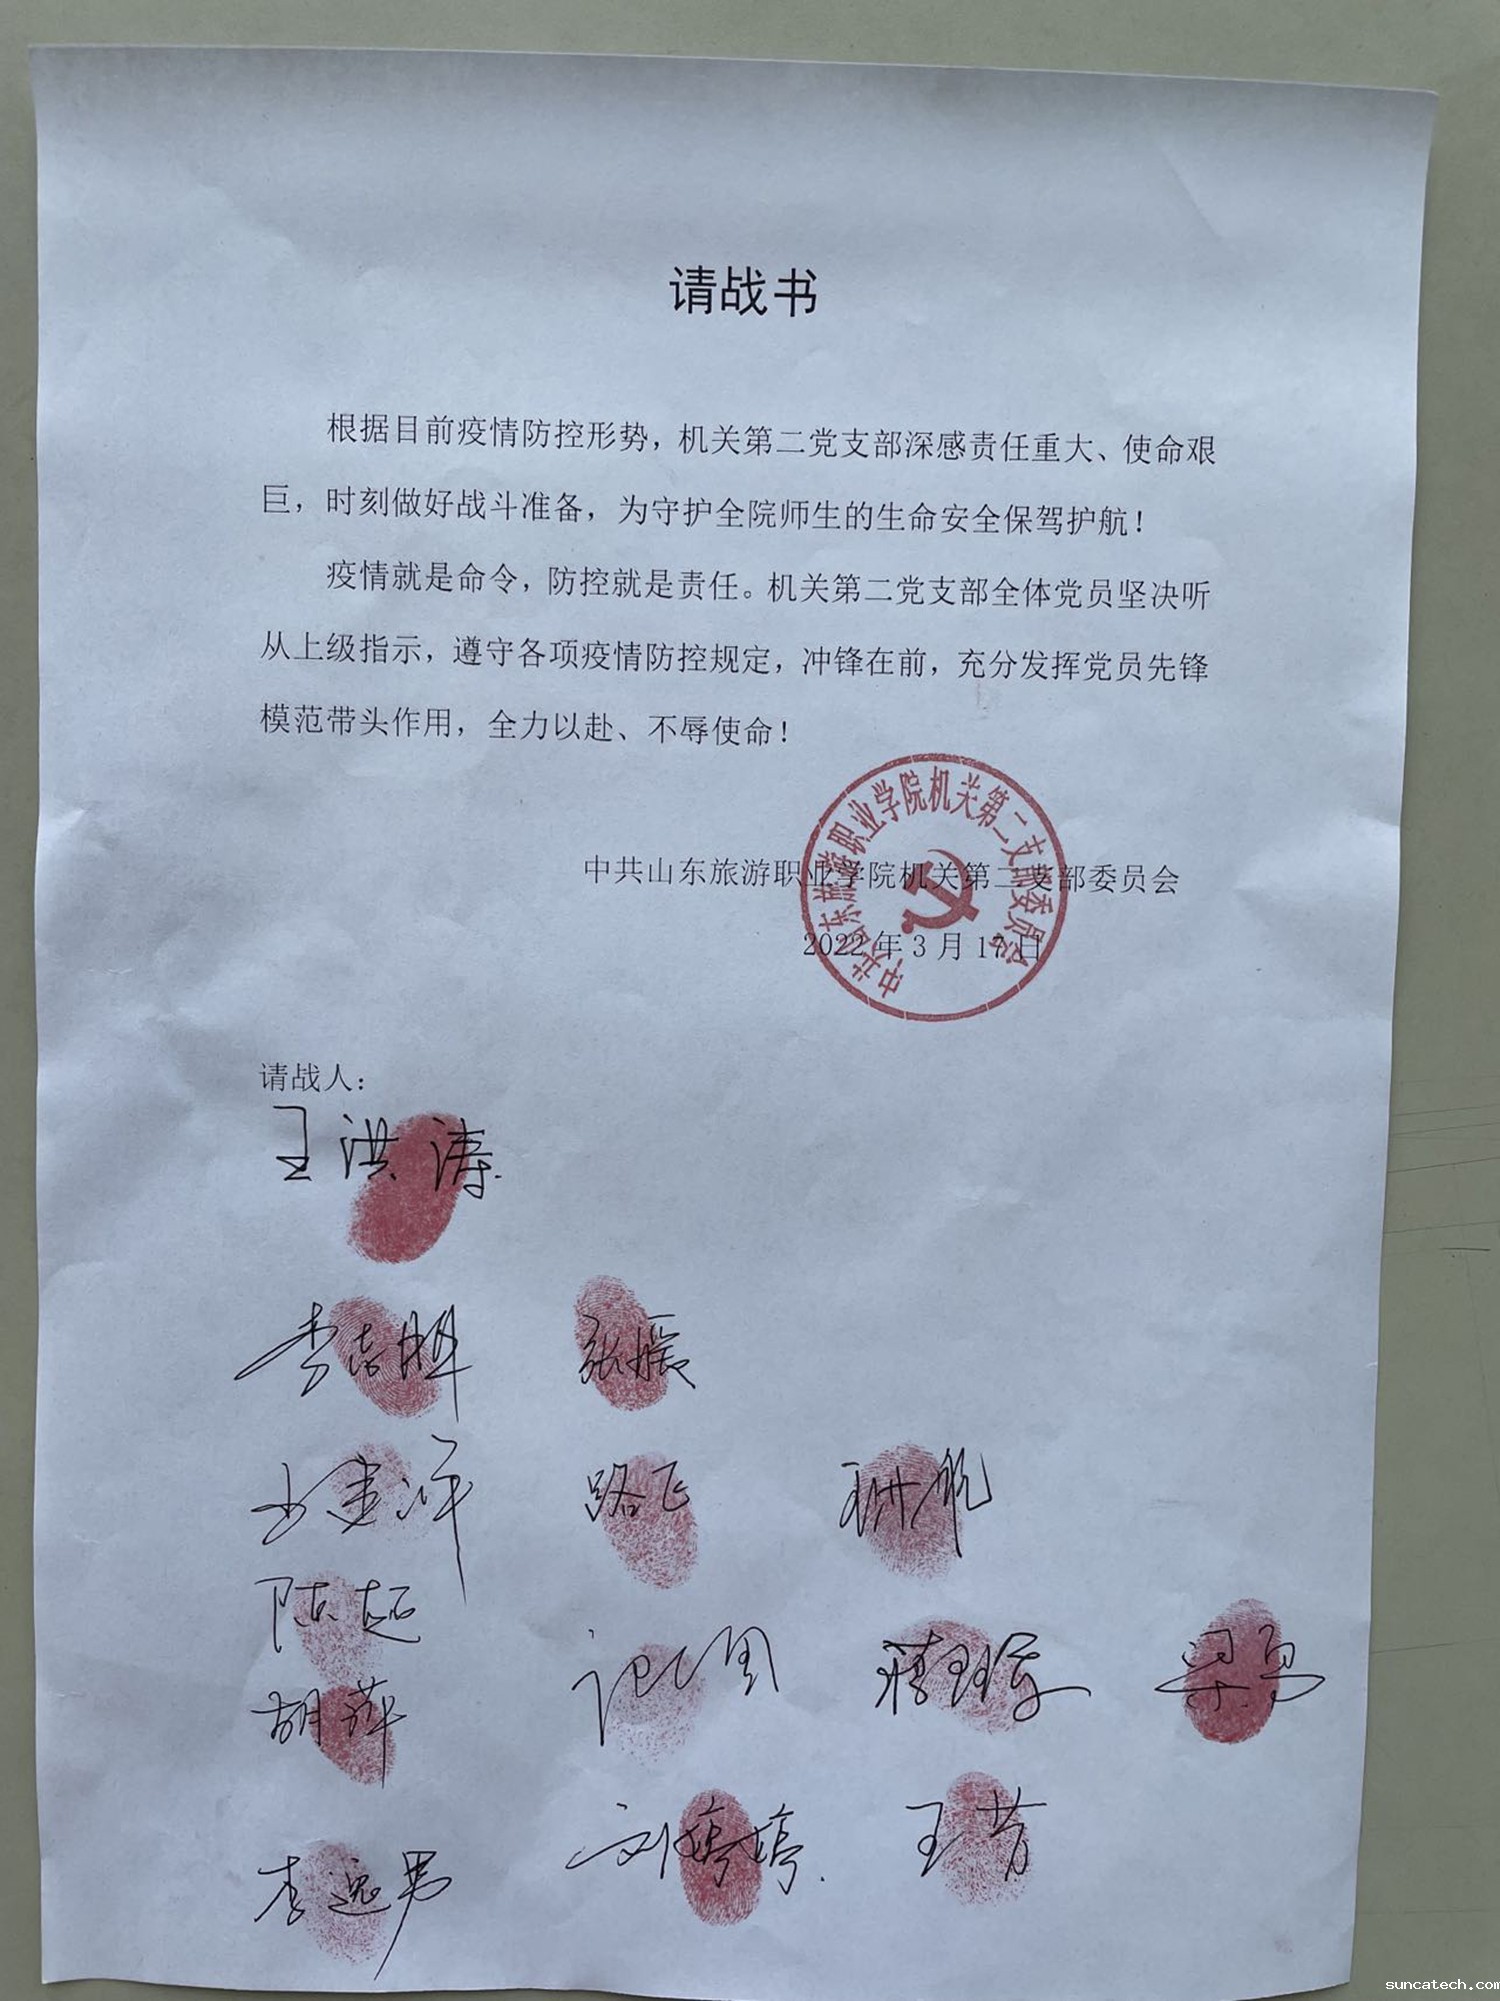 请战书
根据目前疫情防控形势，机关第二党支部深感责任重大、使命艰
巨，时刻做好战斗准备，为守护全院师生的生命安全保驾护航！
疫情就是命令，防控就是责任。机关第二党支部全体党员坚决听
从上级指示，遵守各项疫情防控规定，冲锋在前，充分发挥党员先锋
模范带头作用，全力以赴、不辱使命！
中共山东旅游职业学院机关第二支部委员会
中共山东旅游职业学院机关第二支部委员会
2022年3月17日
请战人：
王洪涛
李志 张媛
路飞
陈超
胡萍 梁勇
刘婷婷 王芳
李逸男
suncatech.com